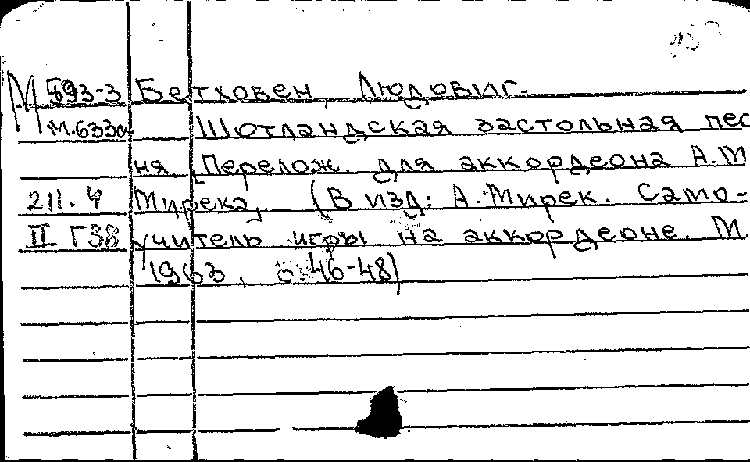 М 593-3 Бетховен, Людовиг.
М.6330 Шотландская застольная пес
ня. [Перелож. для аккордеона А.М
211.4 Мирека, (В изд: А. Мирек. Само-
II Г38 учитель игры на аккордеоне. М.
1963, с. 46-48)